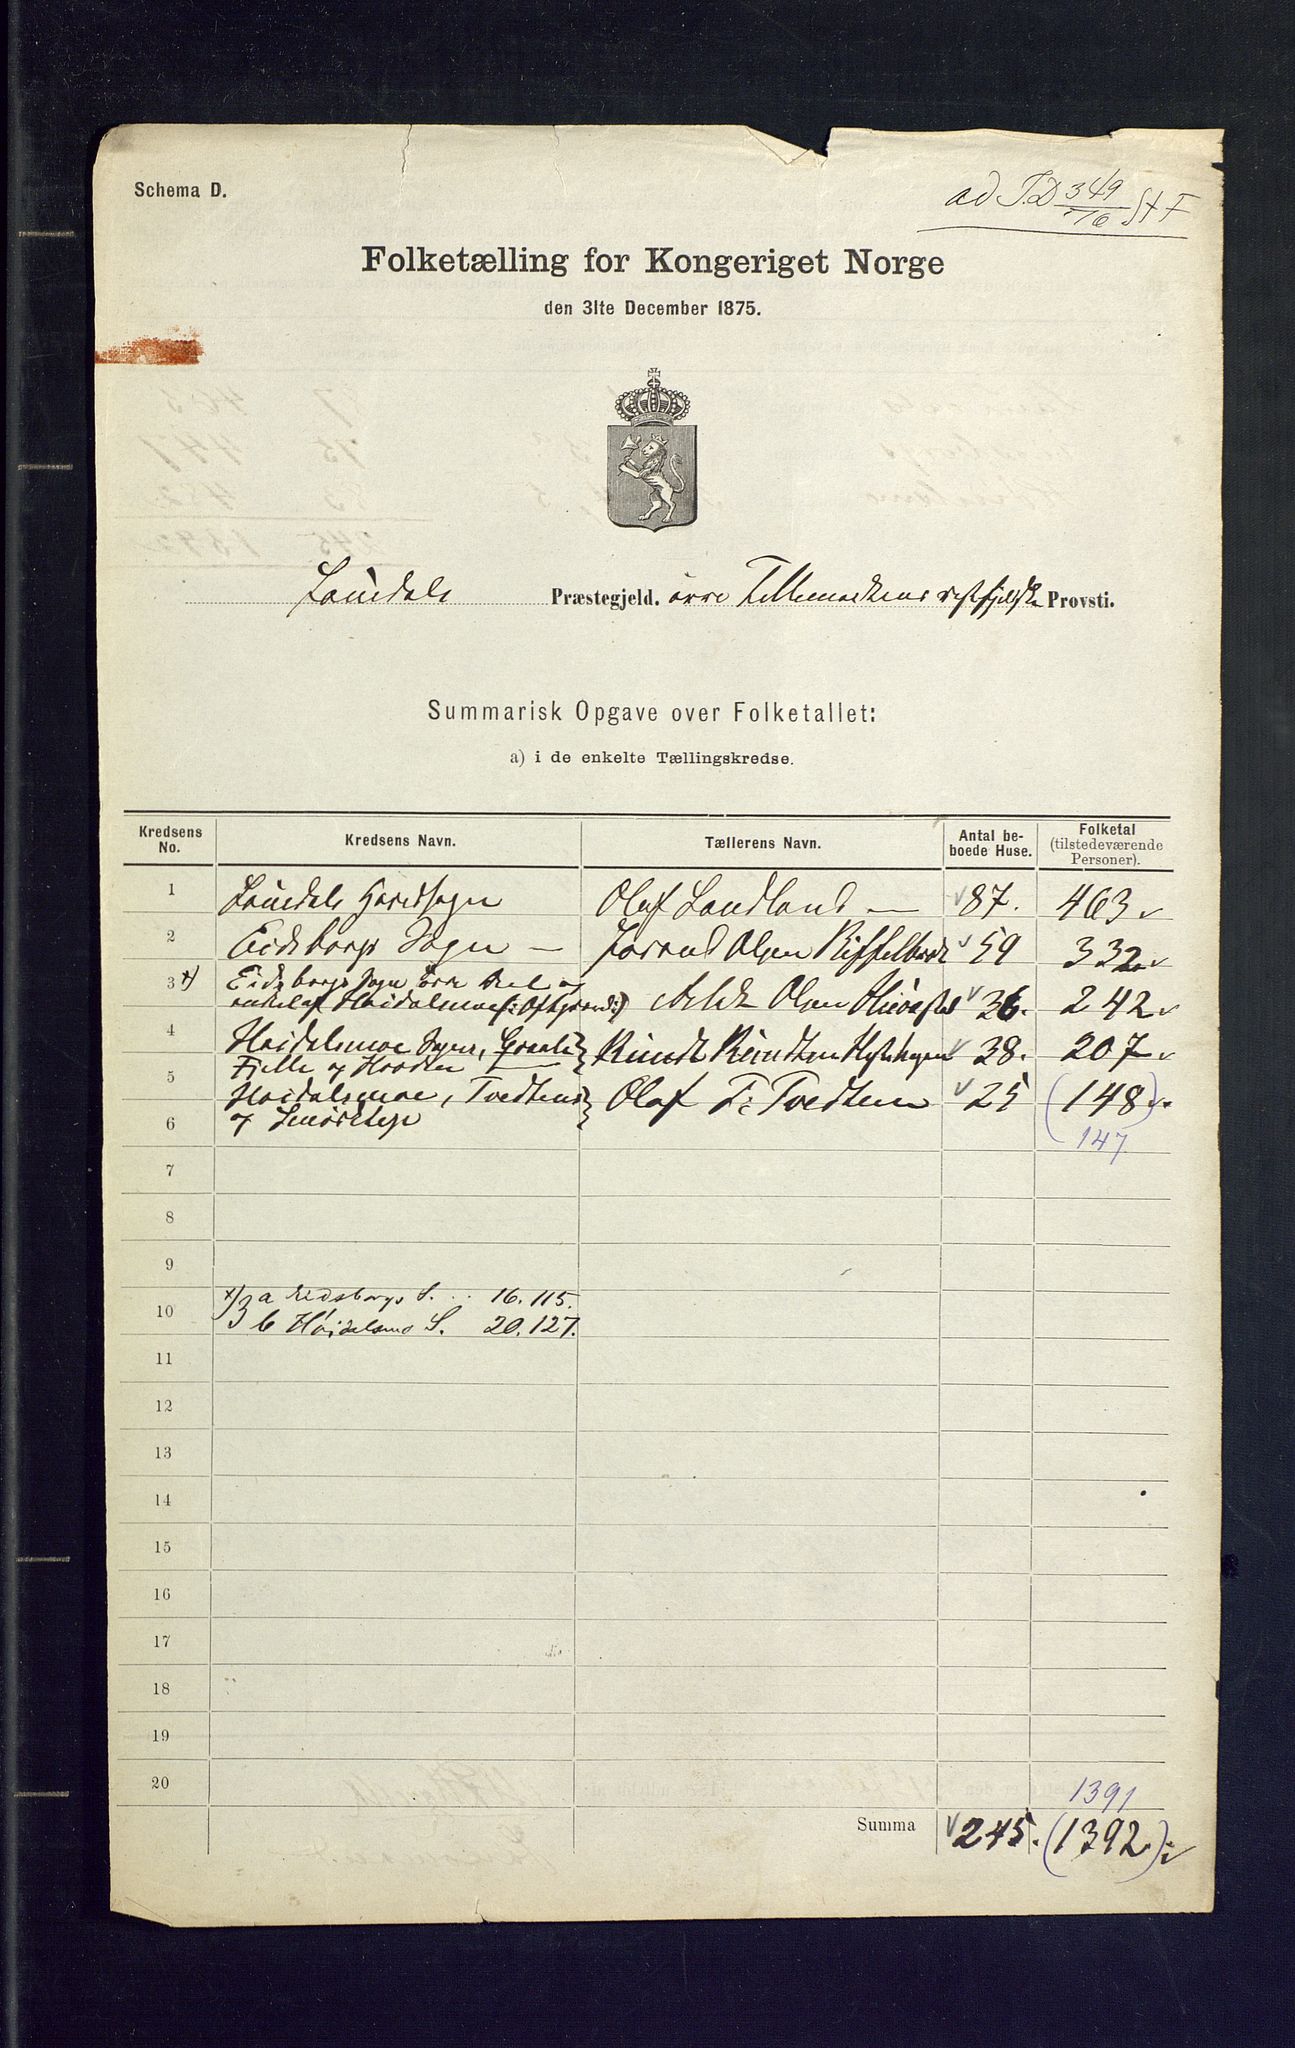 Schema D.
ad T.D 349/76 St F
Folketælling for Kongeriget Norge
den 31te December 1875.
Laurdals Præstegjeld. øvre Tellemarkens vestfjeldske Provsti.
Summarisk Opgave over Folketallet:
a) i de enkelte Tællingskredse.
Kredsens No. Kredsens Navn. Tællerens Navn. Antal beboede Huse. Folketal (tilstedeværende Personer).
1 Laurdals Hovedsogn Olaf Landland — 87. 463
2 Eidsborgs Sogn — Olsen 59 332
3 x) Eidsborgs Sogn øvre Deel og
endel af Høidalsmoe Olsen 36. 242
4 Høidalsmoe Sogn, 38. 207
Fjelle og
5 Høidalsmoe, Tvedtens Olaf T. Tvedten 25 (148)
6 og 147
7
8
9
10 x) 3 a Eidsborgs S. .. 16. 115.
3 b Høidalsmo S. 20. 127.
11
12
13
14
15
16
17
18
19
20 1391
Summa 245. (1392.)